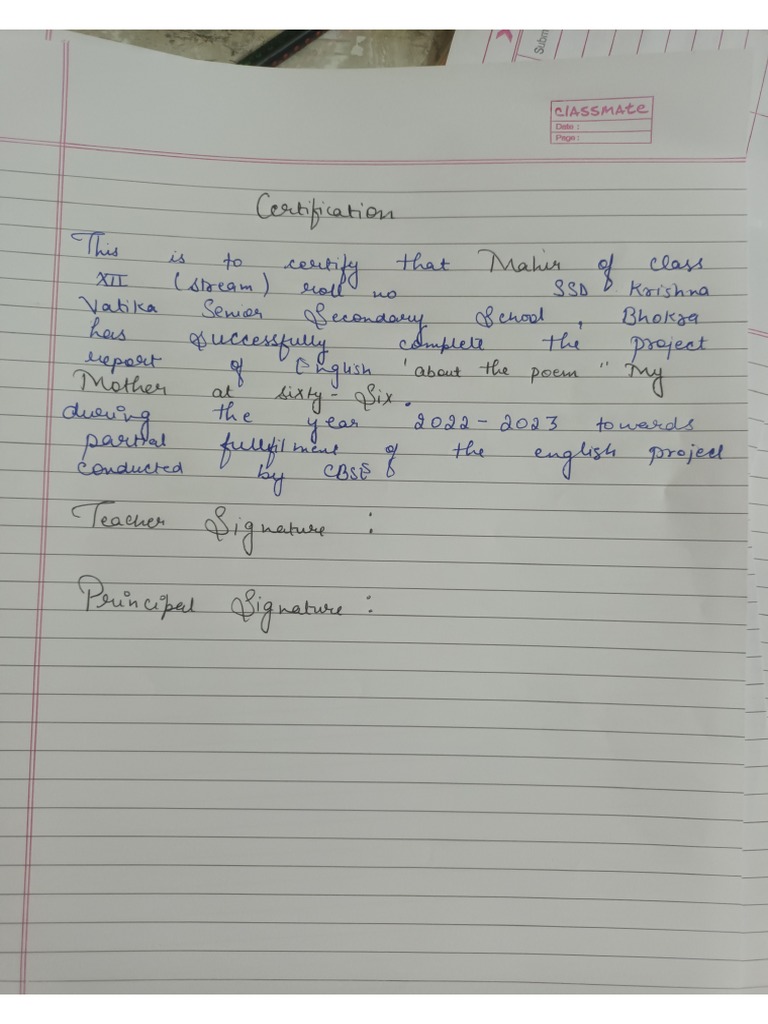 Subm
CLASSMATE
Date :
Page :
Certification
This is to certify that Mahir of class
XII (stream) roll no SSD Krishna
Vatika Senior Secondary School, Bhokra
has successfully complete the project
report of English 'about the poem " My
Mother at sixty-Six.
during the year 2022-2023 towards
partial fullfilment of the english project
conducted by CBSE
Teacher Signature :
Principal Signature :